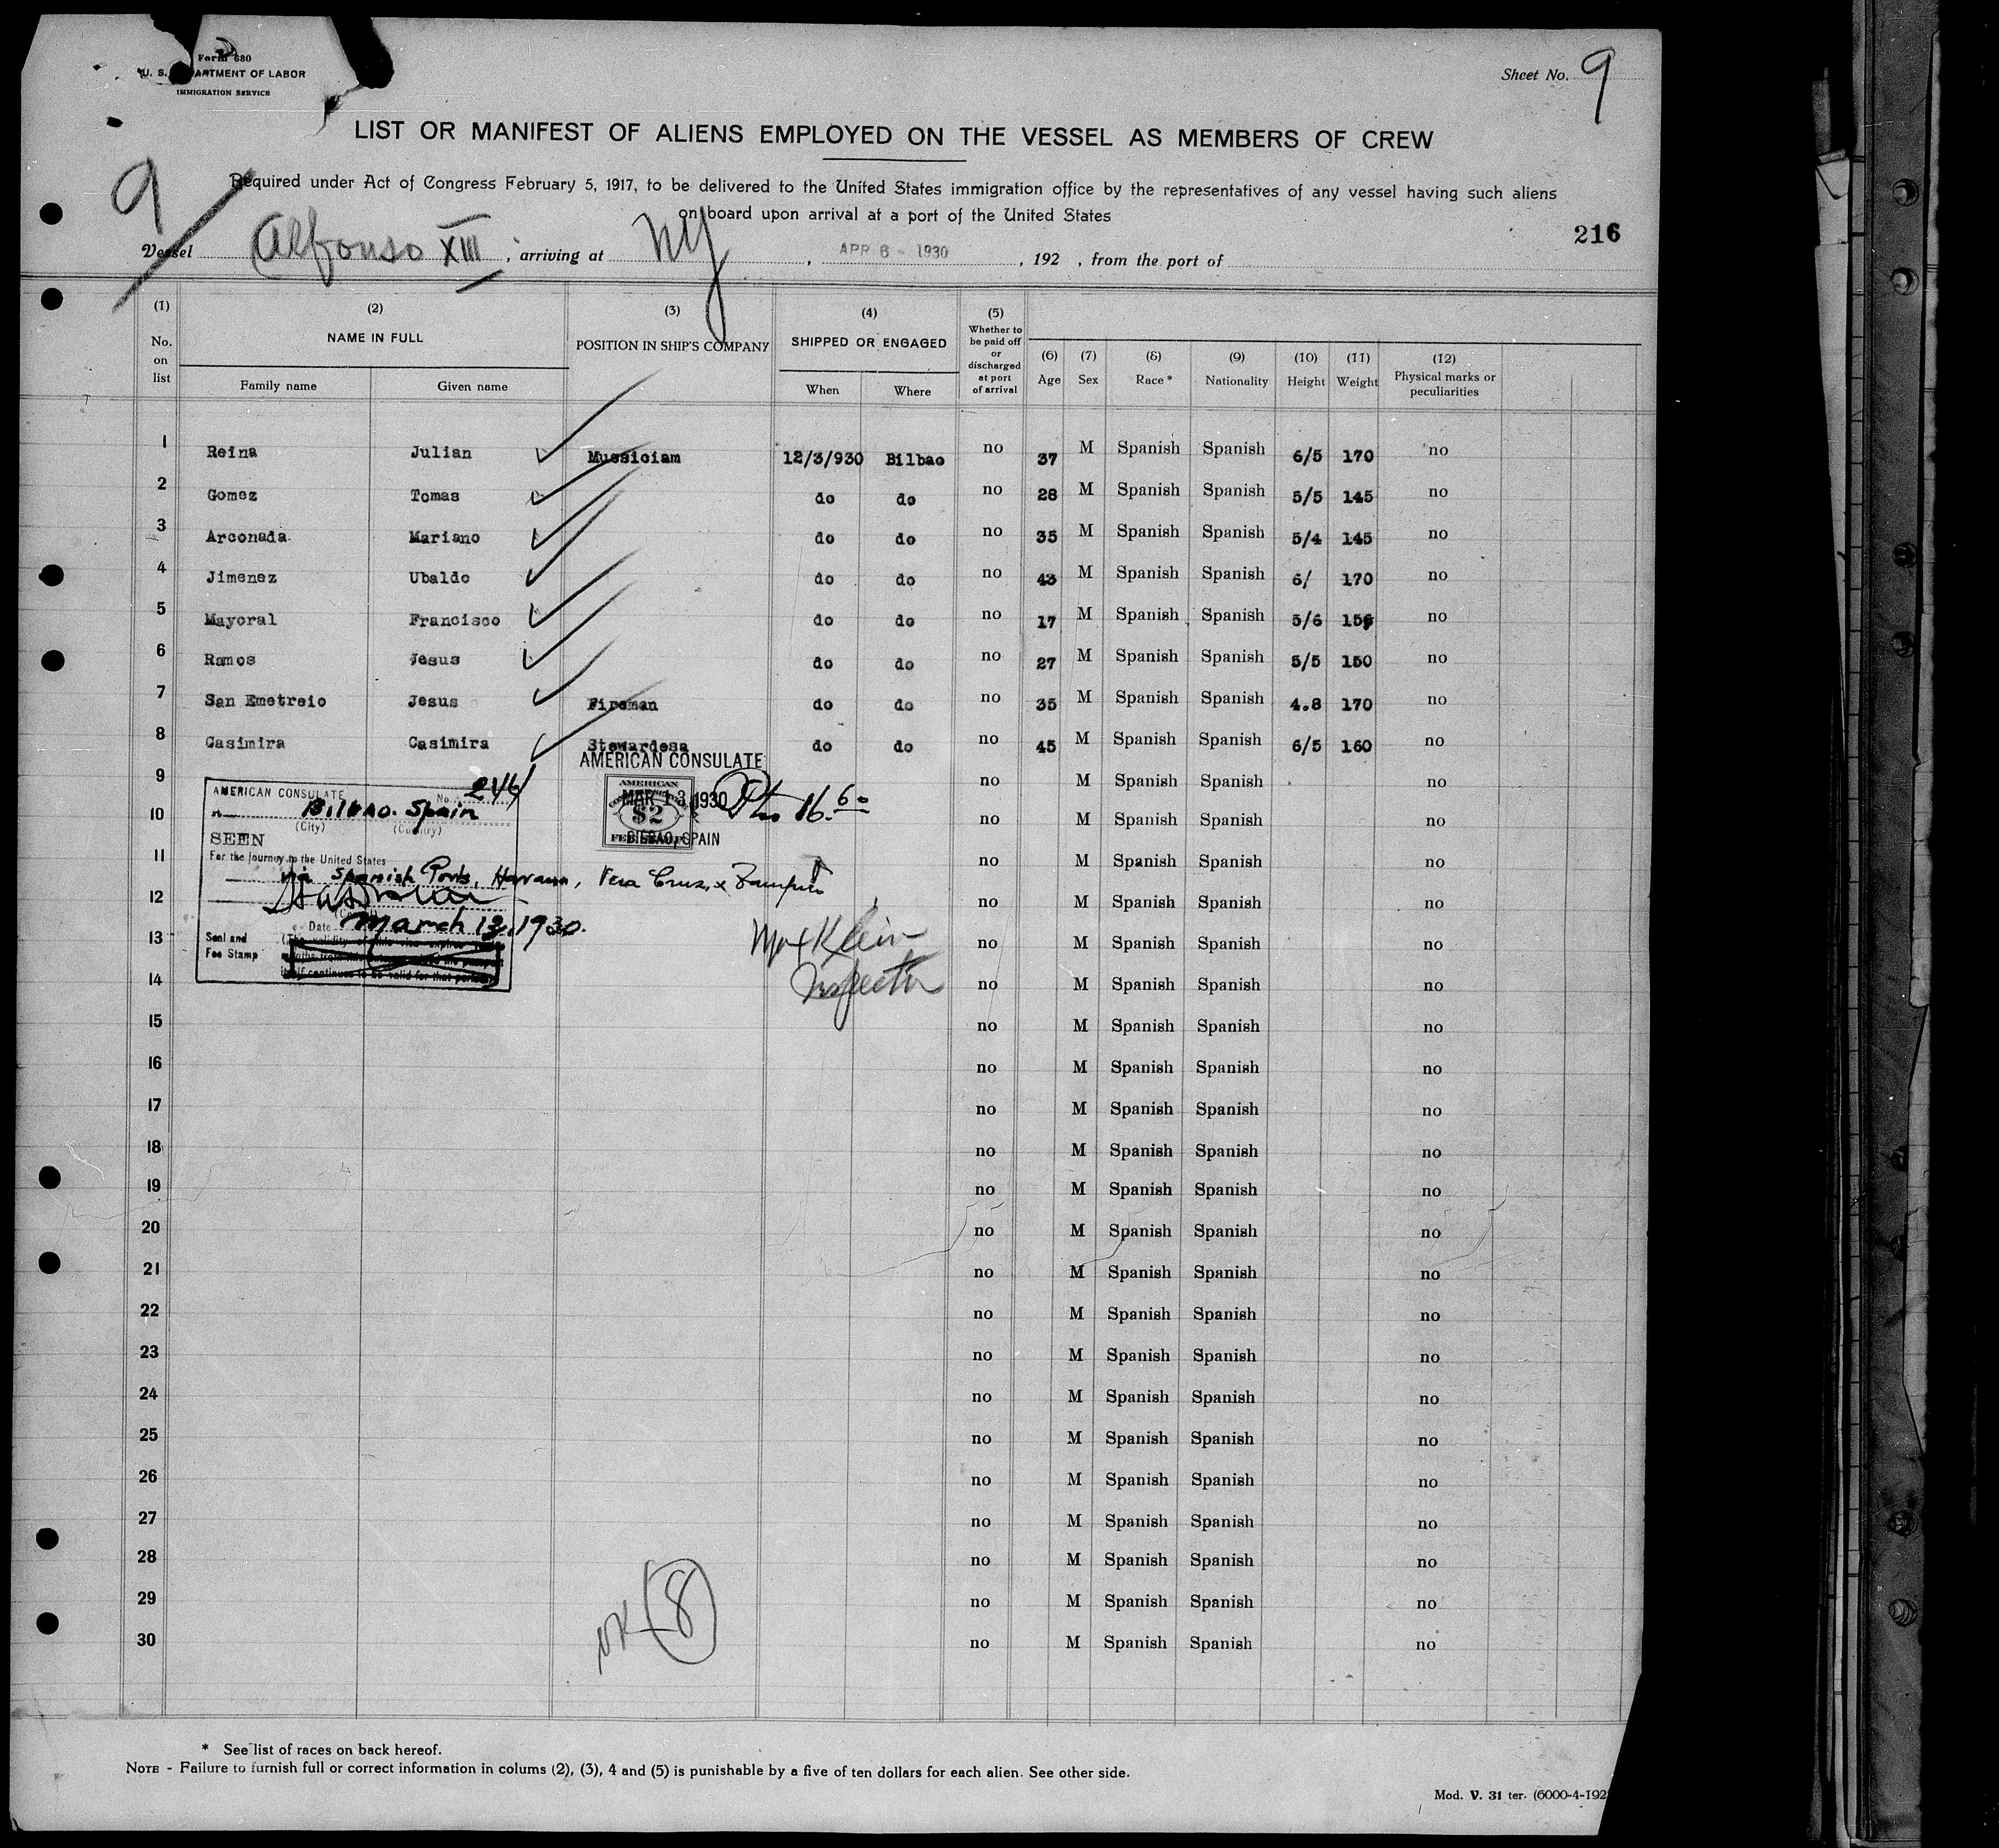 Form 680
U. S. DEPARTMENT OF LABOR
IMMIGRATION SERVICE
Sheet No. 9
LIST OR MANIFEST OF ALIENS EMPLOYED ON THE VESSEL AS MEMBERS OF CREW
9
Required under Act of Congress February 5, 1917, to be delivered to the United States immigration office by the representatives of any vessel having such aliens
on board upon arrival at a port of the United States
216
Vessel Alfonso XIII, arriving at NY, APR 6 - 1930, 192 , from the port of
(1) (2) (3) (4) (5)
No. on list NAME IN FULL POSITION IN SHIP'S COMPANY SHIPPED OR ENGAGED Whether to be paid off or discharged at port of arrival (6) Age (7) Sex (8) Race * (9) Nationality (10) Height (11) Weight (12) Physical marks or peculiarities
Family name Given name When Where
1 Reina Julian Mussiciam 12/3/930 Bilbao no 37 M Spanish Spanish 6/5 170 no
2 Gomez Tomas do do no 28 M Spanish Spanish 5/5 145 no
3 Arconada Mariano do do no 35 M Spanish Spanish 5/4 145 no
4 Jimenez Ubaldo do do no 43 M Spanish Spanish 6/ 170 no
5 Mayoral Francisco do do no 17 M Spanish Spanish 5/6 no
6 Ramos Jesus do do no 27 M Spanish Spanish 5/5 150 no
7 San Emetreio Jesus Fireman do do no 35 M Spanish Spanish 4.8 170 no
8 Casimira Casimira Stewardesa do do no 45 M Spanish Spanish 6/5 160 no
9 no M Spanish Spanish no
10 no M Spanish Spanish no
11 no M Spanish Spanish no
12 no M Spanish Spanish no
13 no M Spanish Spanish no
14 no M Spanish Spanish no
15 no M Spanish Spanish no
16 no M Spanish Spanish no
17 no M Spanish Spanish no
18 no M Spanish Spanish no
19 no M Spanish Spanish no
20 no M Spanish Spanish no
21 no M Spanish Spanish no
22 no M Spanish Spanish no
23 no M Spanish Spanish no
24 no M Spanish Spanish no
25 no M Spanish Spanish no
26 no M Spanish Spanish no
27 no M Spanish Spanish no
28 no M Spanish Spanish no
29 no M Spanish Spanish no
30 no M Spanish Spanish no
AMERICAN CONSULATE
No.
at Bilbao. Spain
(City) (Country)
SEEN
For the journey to the United States
via Spanish Ports, Havana, Vera Cruz, &
(Consul)
Date March 13. 1930.
Seal and
Fee Stamp
AMERICAN CONSULATE
AMERICAN
MAR 13 1930
$2
BILBAO, SPAIN
Klein
Inspector
OK (8)
* See list of races on back hereof.
NOTE - Failure to furnish full or correct information in colums (2), (3), 4 and (5) is punishable by a five of ten dollars for each alien. See other side.
Mod. V. 31 ter. (6000-4-192